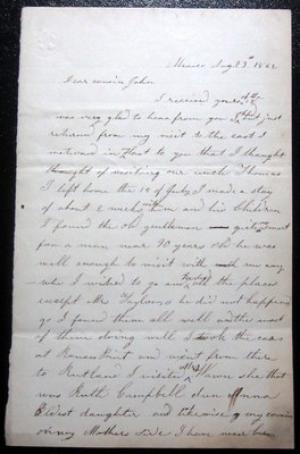 Mexico Aug 3rd 1862
Dear cousin John
I received yours of the
was very glad to hear from you I had just
returned from my visit to the east I
in my last to you that I thought
thought of visiting our uncle Thomas
I left home the 10 of July I made a stay
of about 2 weeks with him and his Children
I found the old gentleman quite smart
for a man near 90 years old he was
well enough to visit with me any
where I wished to go and visited all the places
except Mr Taylors he did not happen
go I found them all well and the most
of them doing well I took the cars
at and went from there
to Rutland I visited Mrs she that
was Ruth Campbell Anna
Eldest daughter and likewise my cousins
on my Mothers side I have never been